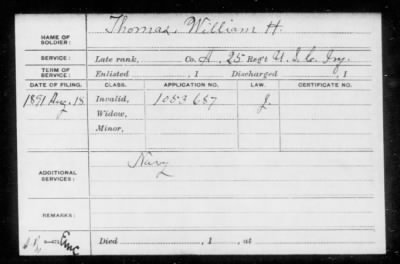 NAME OF SOLDIER: Thomas, William H.
SERVICE: Late rank, Co. A, 25 Reg't U. S. C. Inf.
TERM OF SERVICE: Enlisted , 1 Discharged , 1
DATE OF FILING. CLASS. APPLICATION NO. LAW. CERTIFICATE NO.
1891 Aug. 18 Invalid, 1053687 J.
Widow,
Minor,
ADDITIONAL SERVICES: Navy
REMARKS:
Died , 1 , at